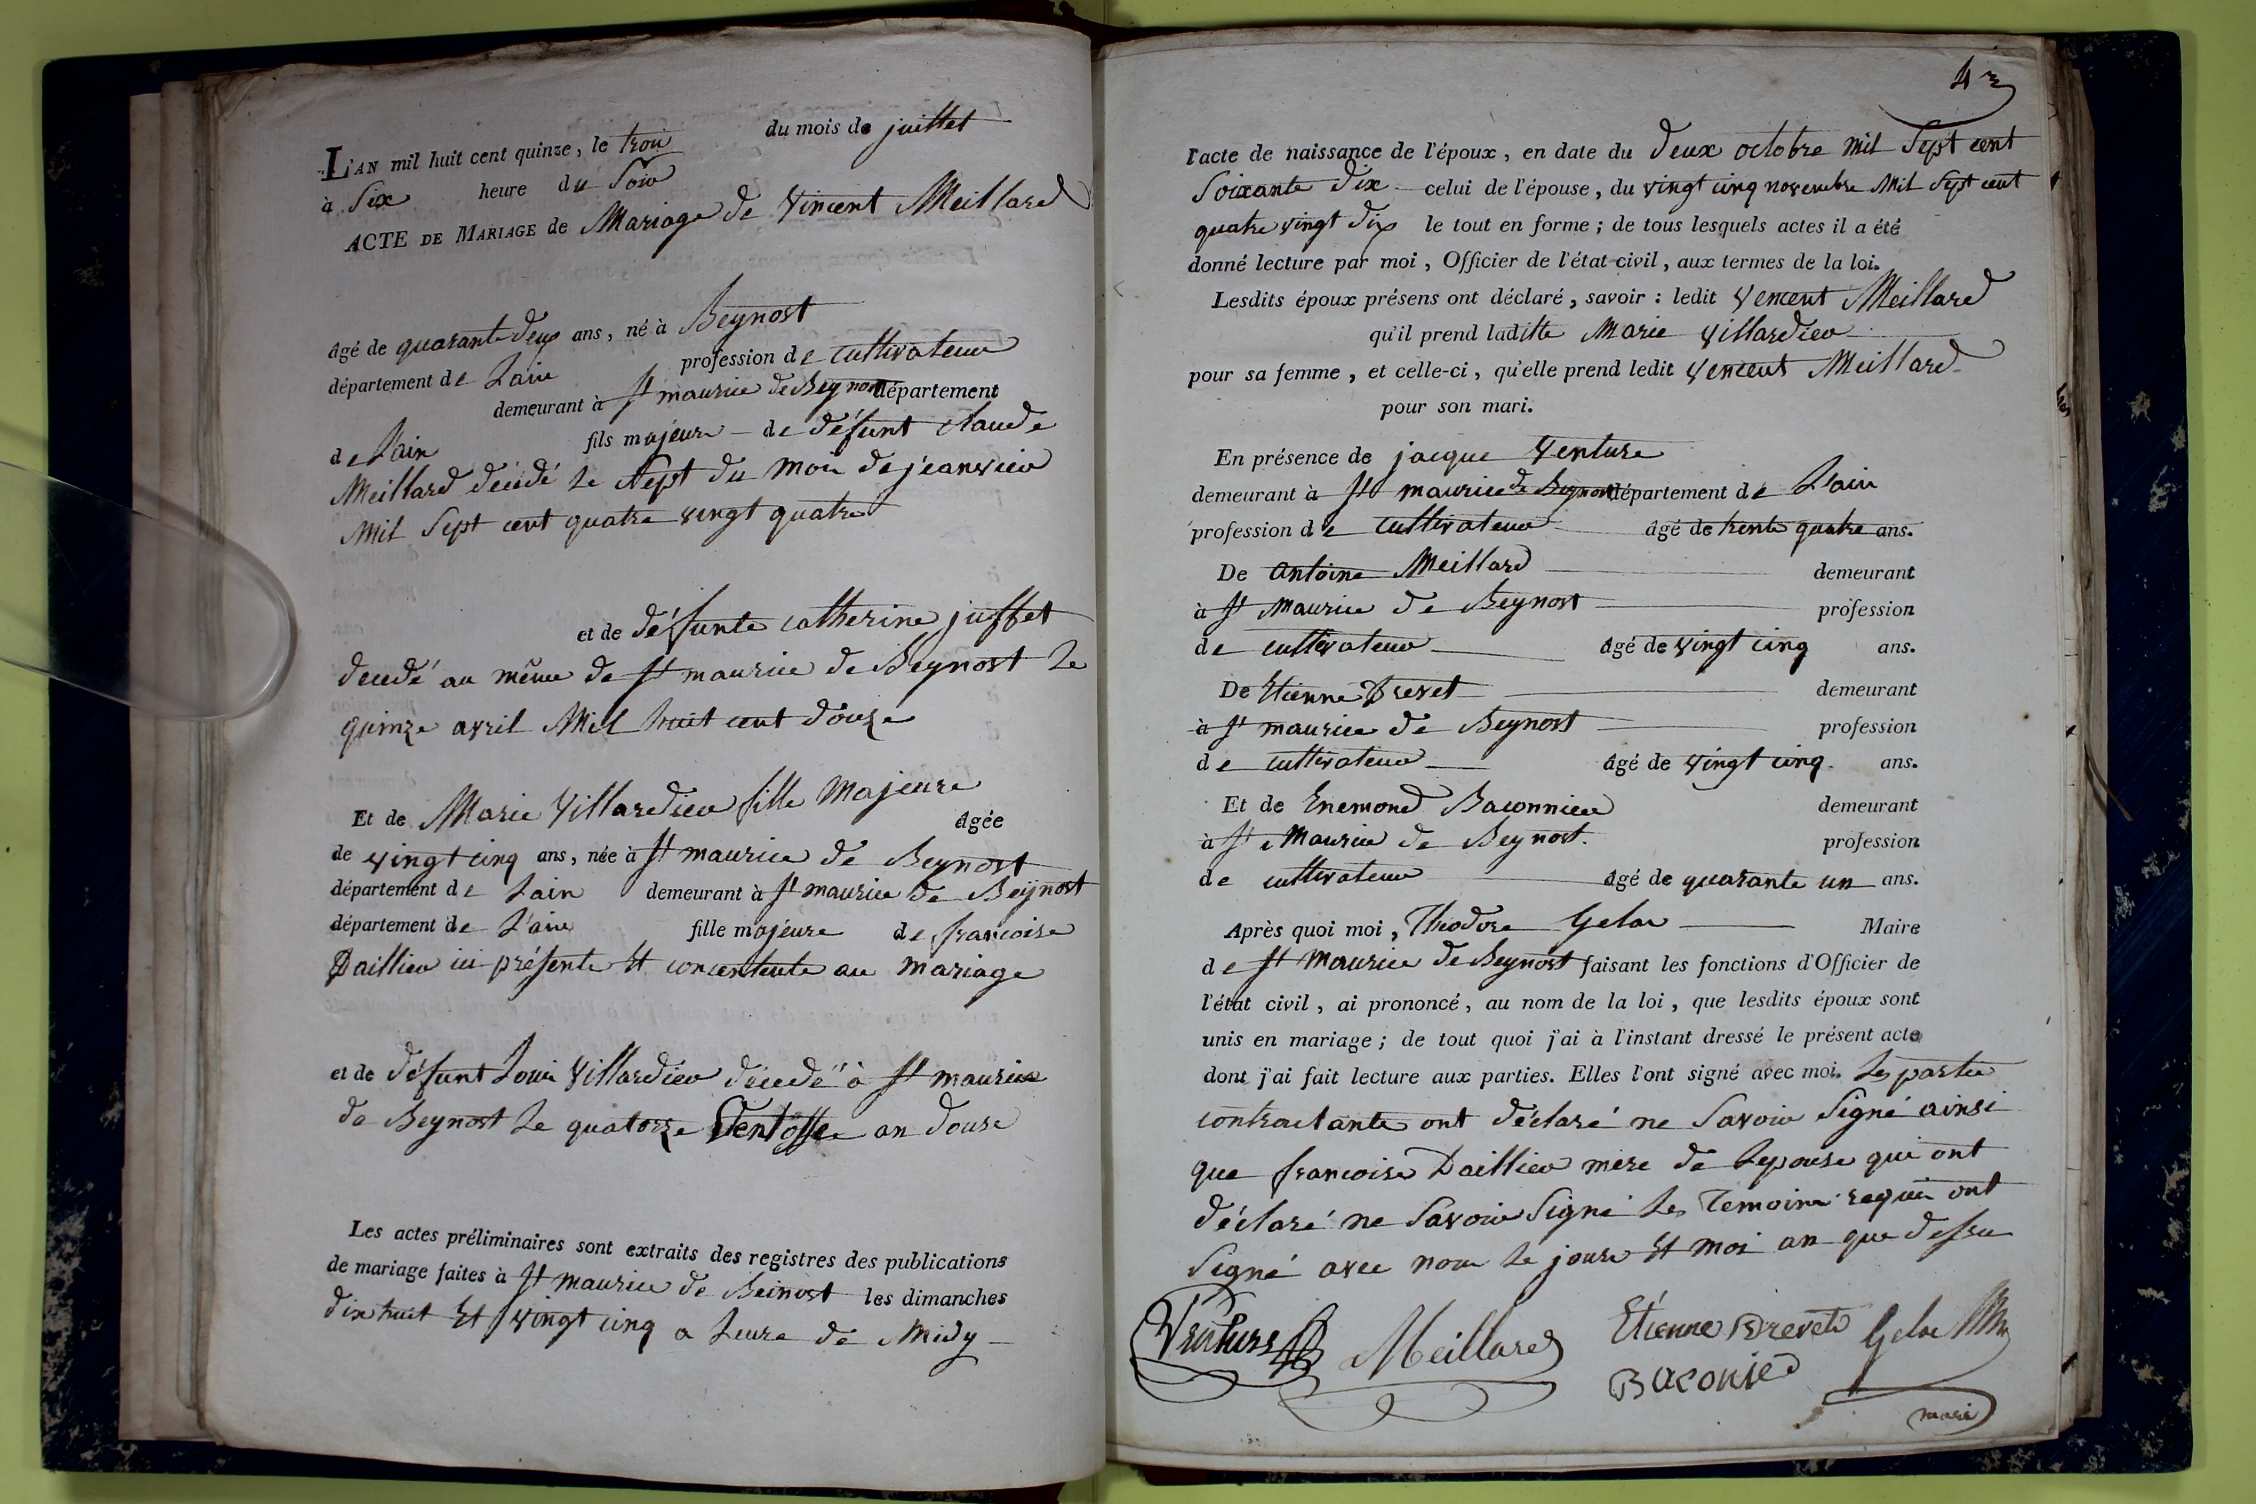 L'AN mil huit cent quinze, le troi du mois de juillet
à Six heure du Soir
ACTE DE MARIAGE de Mariage de Vincent Meillard
âgé de quarante deux ans, né à Beynost
département de Lain profession de cultivateur
demeurant à St maurice de Beynost département
de Lain fils majeur de défunt claude
Meillard décédé le Sept du moi de jeanvier
Mil Sept cent quatre vingt quatre
et de défunte catherine juffet
decedé au même de St maurice de Beynost le
quinze avril Mil huit cent douze
Et de Marie Villardieu fille Majeure
âgée
de vingt cinq ans, née à St maurice de Beynost
département de Lain demeurant à St maurice de Beynost
département de L'ain fille majeure de francoise
Daillieu ici présente Et concentente au mariage
et de défunt Loui Villardieu décedé à St maurice
de Beynost le quatorze Ventosse an douse
Les actes préliminaires sont extraits des registres des publications
de mariage faites à St maurice de Beinost les dimanches
dix huit Et vingt cinq a heure de Midy
l'acte de naissance de l'époux, en date du deux octobre mil Sept cent
Soixante dix celui de l'épouse, du vingt cinq novembre Mil Sept cent
quatre vingt dix le tout en forme ; de tous lesquels actes il a été
donné lecture par moi, Officier de l'état civil, aux termes de la loi.
Lesdits époux présens ont déclaré, savoir : ledit Vencent Meillard
qu'il prend laditte Marie Villardieu
pour sa femme, et celle-ci, qu'elle prend ledit Vencent Meillard
pour son mari.
En présence de jacque Venture
demeurant à St maurice de Beynost département de L'ain
profession de cultivateur âgé de trente quatre ans.
De antoine Meillard demeurant
à St Maurice de Beynost profession
de cultivateur âgé de vingt cinq ans.
De Etienne Brevet demeurant
à St maurice de Beynost profession
de cultivateur âgé de vingt cinq ans.
Et de Enemond Baconnier demeurant
à St Maurice de Beynost. profession
de cultivateur âgé de quarante un ans.
Après quoi moi, Théodore Gelas Maire
de St Maurice de Beynost faisant les fonctions d'Officier de
l'état civil, ai prononcé, au nom de la loi, que lesdits époux sont
unis en mariage ; de tout quoi j'ai à l'instant dressé le présent acte
dont j'ai fait lecture aux parties. Elles l'ont signé avec moi. les partie
contractante ont déclaré ne Savoir Signé ainsi
que francoise Daillieu mere de Lepouse qui ont
déclaré ne Savoir Signé les Temoins requi ont
Signé avec nou le jour Et moi an que dessu
Meillard Etienne Brevet Gelas
Baconied
maire